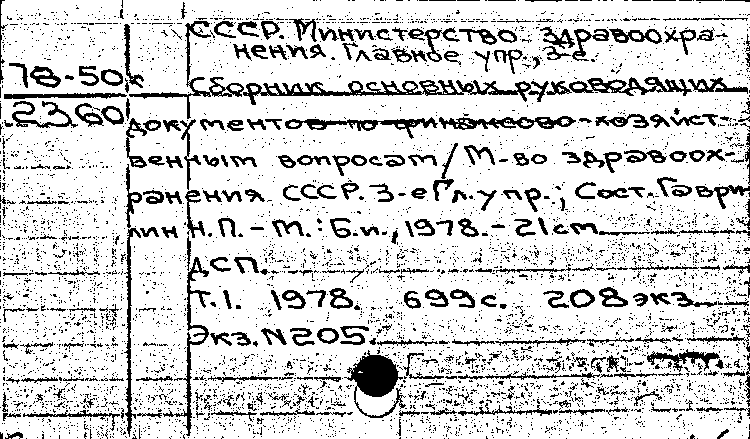 СССР. Министерство здравоохра-
нения. Главное упр., 3-е.
78-50к Сборник основных руководящих
2360 документов по финансово-хозяйст-
венным вопросам / М-во здравоох-
ранения СССР. 3-е Гл. упр.; Сост. Гаври
лин Н.П. - М.: Б.и., 1978. - 21 cm.
ДСП.
Т.1. 1978. 699 с. 208 экз.
Экз. N 205.